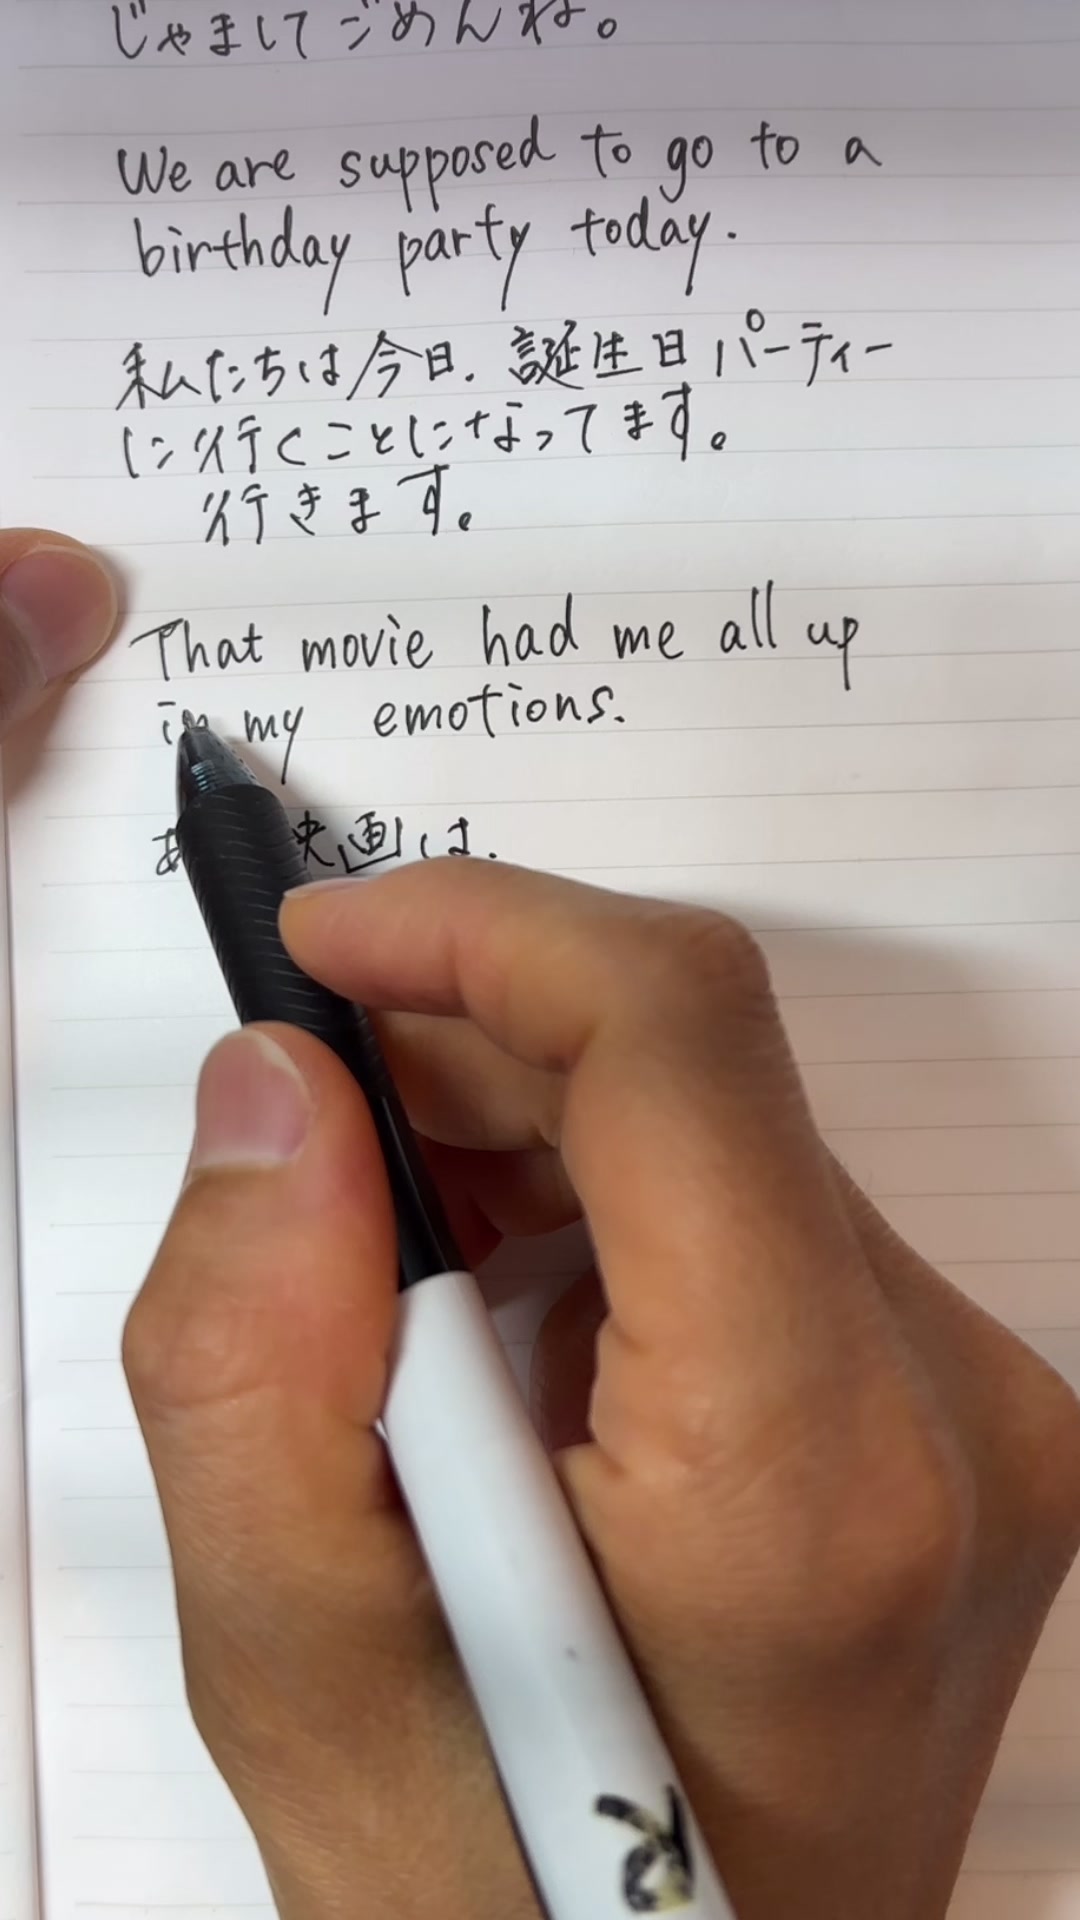 じゃましてごめんね。
We are supposed to go to a
birthday party today.
私たちは今日、誕生日パーティー
に行くことになってます。
行きます。
That movie had me all up
in my emotions.
あ 映画は、